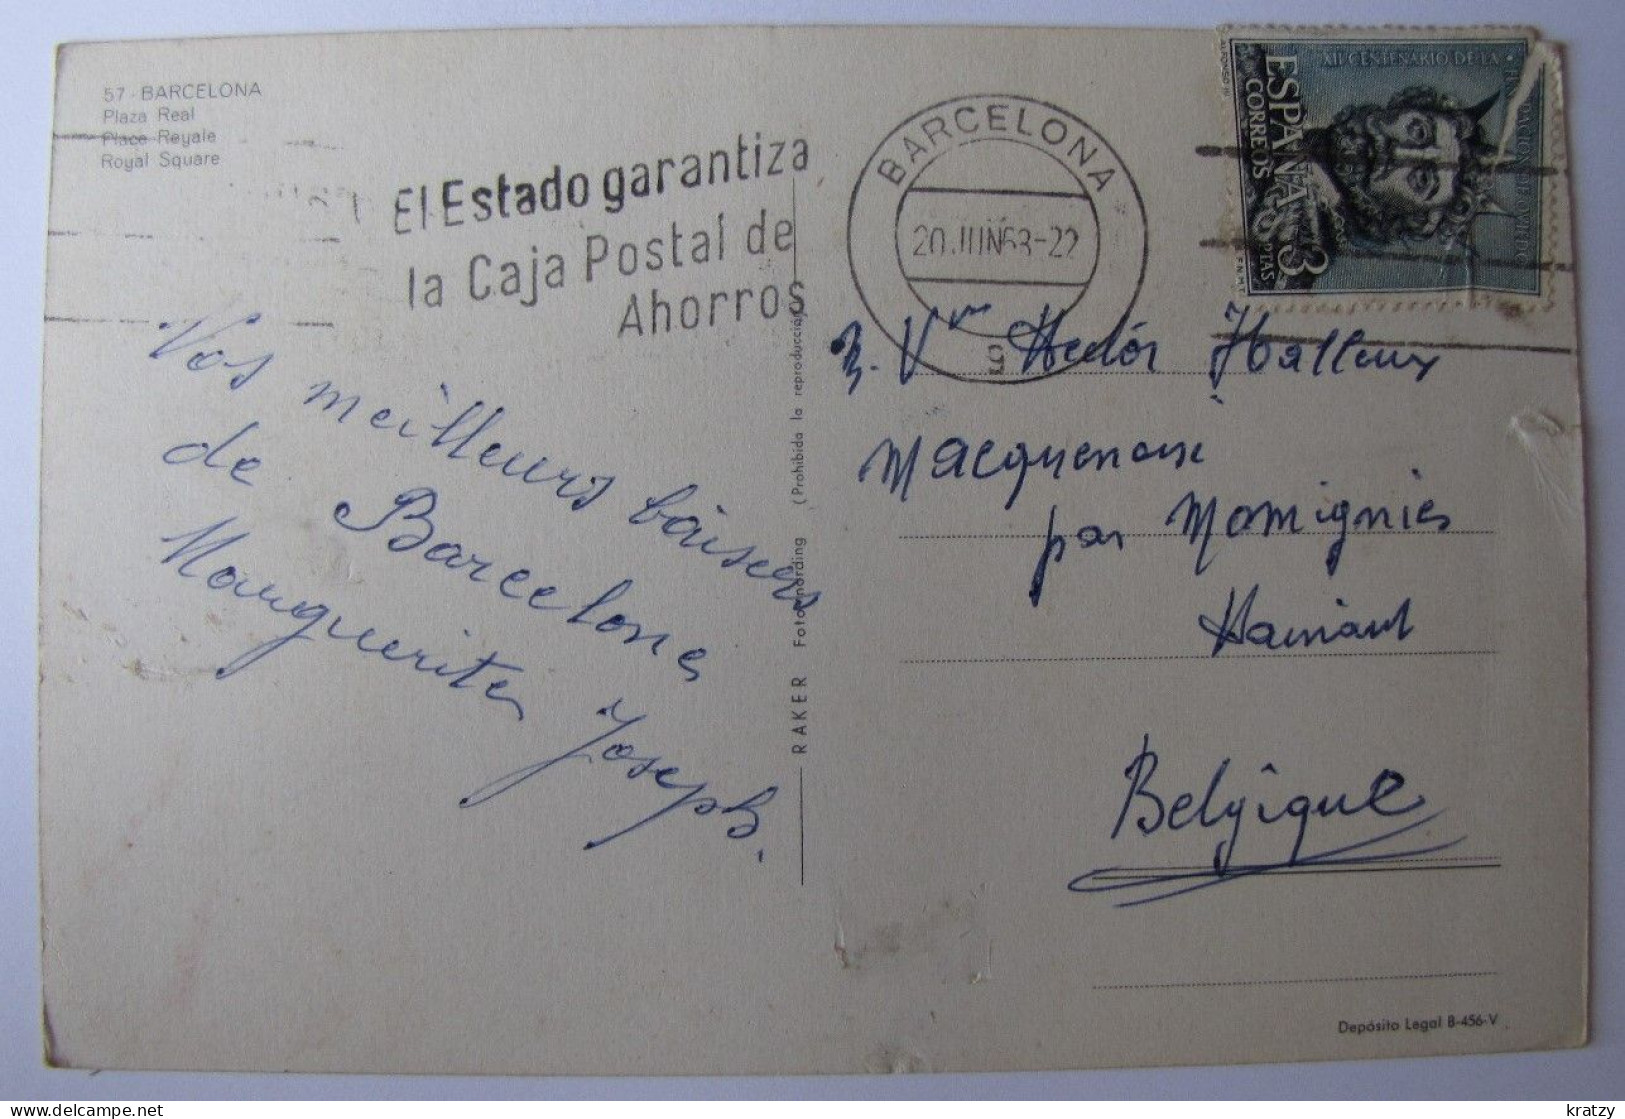 57 - BARCELONA
Plaza Real
Place Reyale
Royal Square
El Estado garantiza
la Caja Postal de
Ahorros
BARCELONA
20.JUN63-22
9
ESPAÑA
CORREOS
3
PTAS
XII CENTENARIO DE LA
FUNDACION DE OVIEDO
F.N.M.T.
Vos meilleurs baisers
de Barcelone
Marguerite Joseph.
RAKER (Prohibida la reproducción)
Vve Hector Halleux
Macquenoise
par Momignies
Hainaut
Belgique
Depósito Legal B-456-V
kratzy